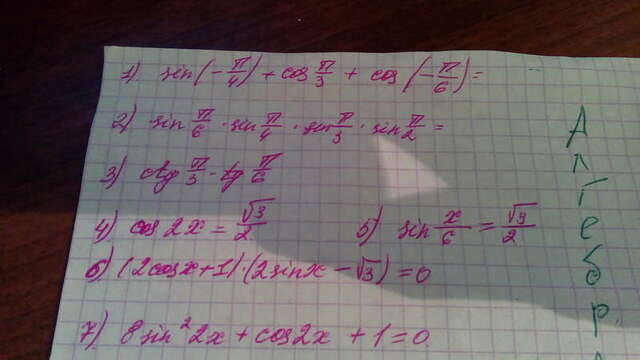 1) sin(-π/4) + cos π/3 + cos(-π/6) =
2) sin π/6 · sin π/4 · sin π/3 · sin π/2 =
3) ctg π/3 - tg π/6
4) cos 2x = √3/2
5) sin x/6 = √3/2
6) (2cosx+1)·(2sinx - √3) = 0
7) 8sin²2x + cos2x + 1 = 0
А
л
г
е
б
р